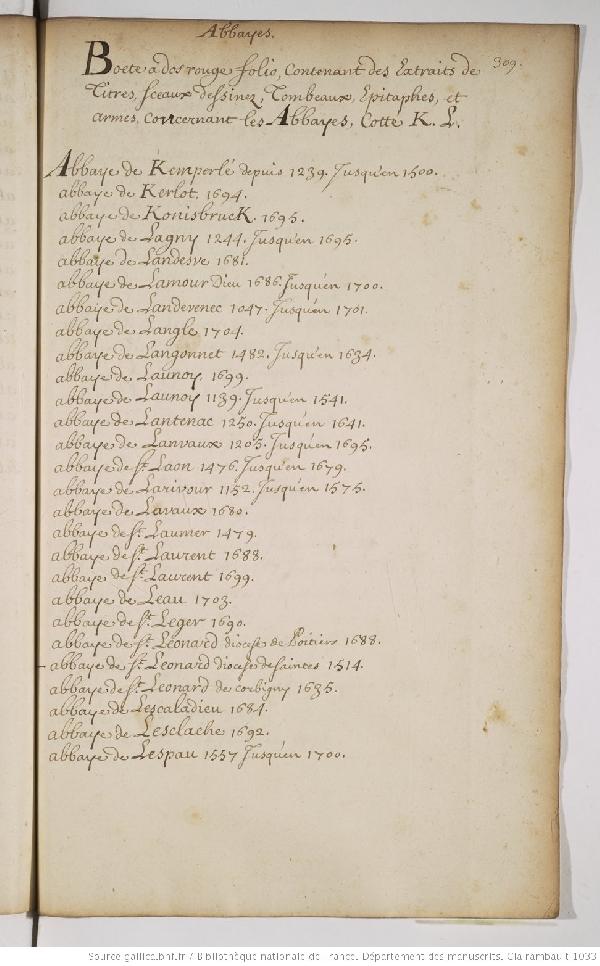 Abbayes.
309.
Boete a dos rouge folio, Contenant des Extraits de
Titres, sceaux dessinez, Tombeaux, Epitaphes, et
armes, concernant les Abbayes, Cotté K. L.
Abbaye de Kemperlé depuis 1239. Jusqu'en 1500.
abbaye de Kerlot. 1694.
abbaye de Konisbruck. 1695.
abbaye de Lagny 1244. Jusqu'en 1695.
abbaye de Landesve 1681.
abbaye de Lamour Dieu 1686. Jusqu'en 1700.
abbaye de Landevenec 1047. Jusqu'en 1701.
abbaye de Langle 1704.
abbaye de Langonnet 1482. Jusqu'en 1634.
abbaye de Launoy. 1699.
abbaye de Launoy 1139. Jusqu'en 1541.
abbaye de Lantenac 1250. Jusqu'en 1641.
abbaye de Lanvaux 1205. Jusqu'en 1695.
abbaye de St. Laon 1476. Jusqu'en 1679.
abbaye de Larivour 1152. Jusqu'en 1575.
abbaye de Lavaux 1680.
abbaye de St. Laumer 1479.
abbaye de St. Laurent 1688.
abbaye de St. Laurent 1699.
abbaye de Leau 1703.
abbaye de St. Leger 1690.
abbaye de St. Leonard diocese de Poitiers 1688.
abbaye de St. Leonard diocese de saintes 1514.
abbaye de St. Leonard de corbigny 1635.
abbaye de Lescaladieu 1684.
abbaye de Lesclache 1692.
abbaye de Lespau 1557 Jusqu'en 1700.
Source gallica.bnf.fr / Bibliothèque nationale de France. Département des manuscrits. Clairambault 1033